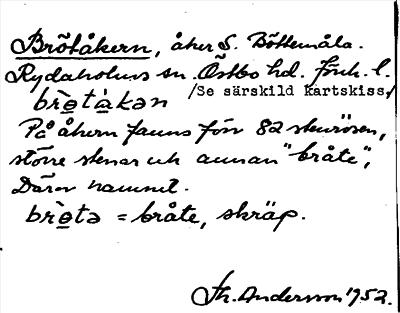 Brötåkern, åker S. Böttemåla.
Rydaholms sn. Östbo hd. Jönk. l.
/Se särskild kartskiss/
brò̤tàkən
På åkern fanns förr 82 stenrösen,
större stenar och annan "bråte",
Därav namnet.
brò̤tə = bråte, skräp.
Th. Andersson 1952.